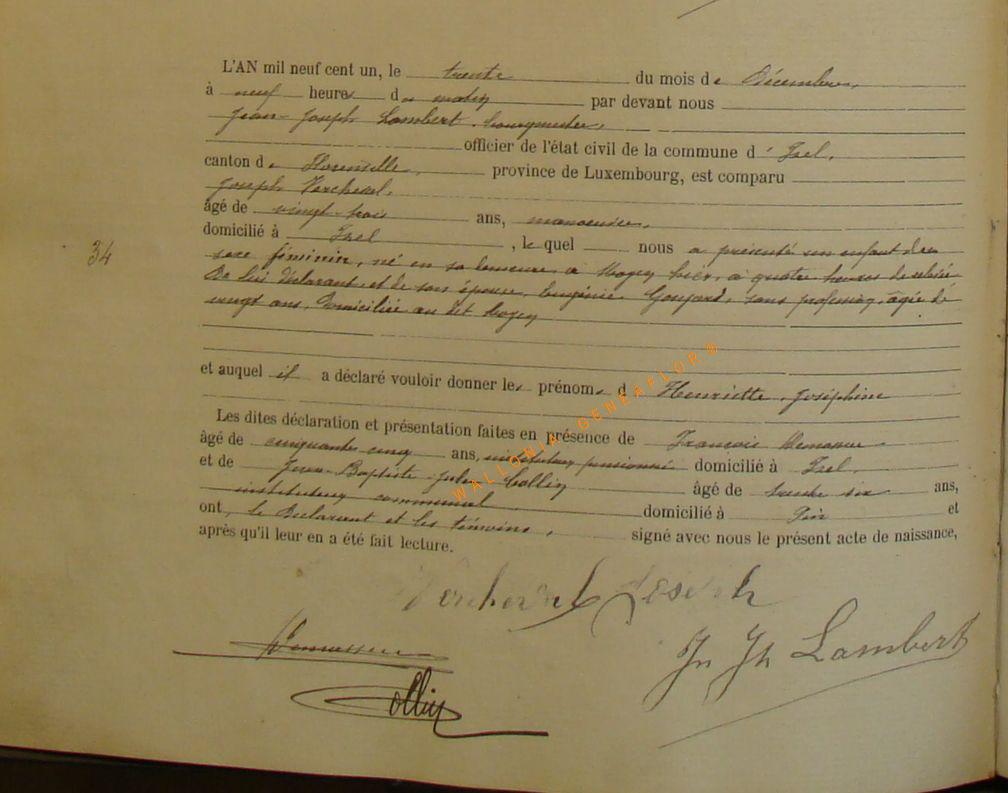 L'AN mil neuf cent un, le trente du mois de Décembre,
à neuf heures du matin par devant nous
Jean-Joseph Lambert, bourgmestre,
officier de l'état civil de la commune d'Izel,
canton de Florenville, province de Luxembourg, est comparu
Joseph Vercheval,
âgé de vingt-trois ans, manoeuvre,
domicilié à Izel, lequel nous a présenté un enfant du
34
sexe féminin, né en sa demeure, à Moyen hier, à quatre heures de relevée
De lui déclarant, et de son épouse, Eugénie, sans profession, âgée de
vingt ans, Domiciliée au dit Moyen
et auquel il a déclaré vouloir donner les prénoms d Henriette, Joséphine
Les dites déclaration et présentation faites en présence de François
âgé de cinquante cinq ans, instituteur pensionné domicilié à Izel,
et de Jean-Baptiste-Jules Collin âgé de trente six ans,
instituteur communal domicilié à Pin et
ont, le Déclarant et les témoins, signé avec nous le présent acte de naissance,
après qu'il leur en a été fait lecture.
Vercheval Joseph
Jn Jh Lambert
Collin
WALLONIA GENEAFLOR ®